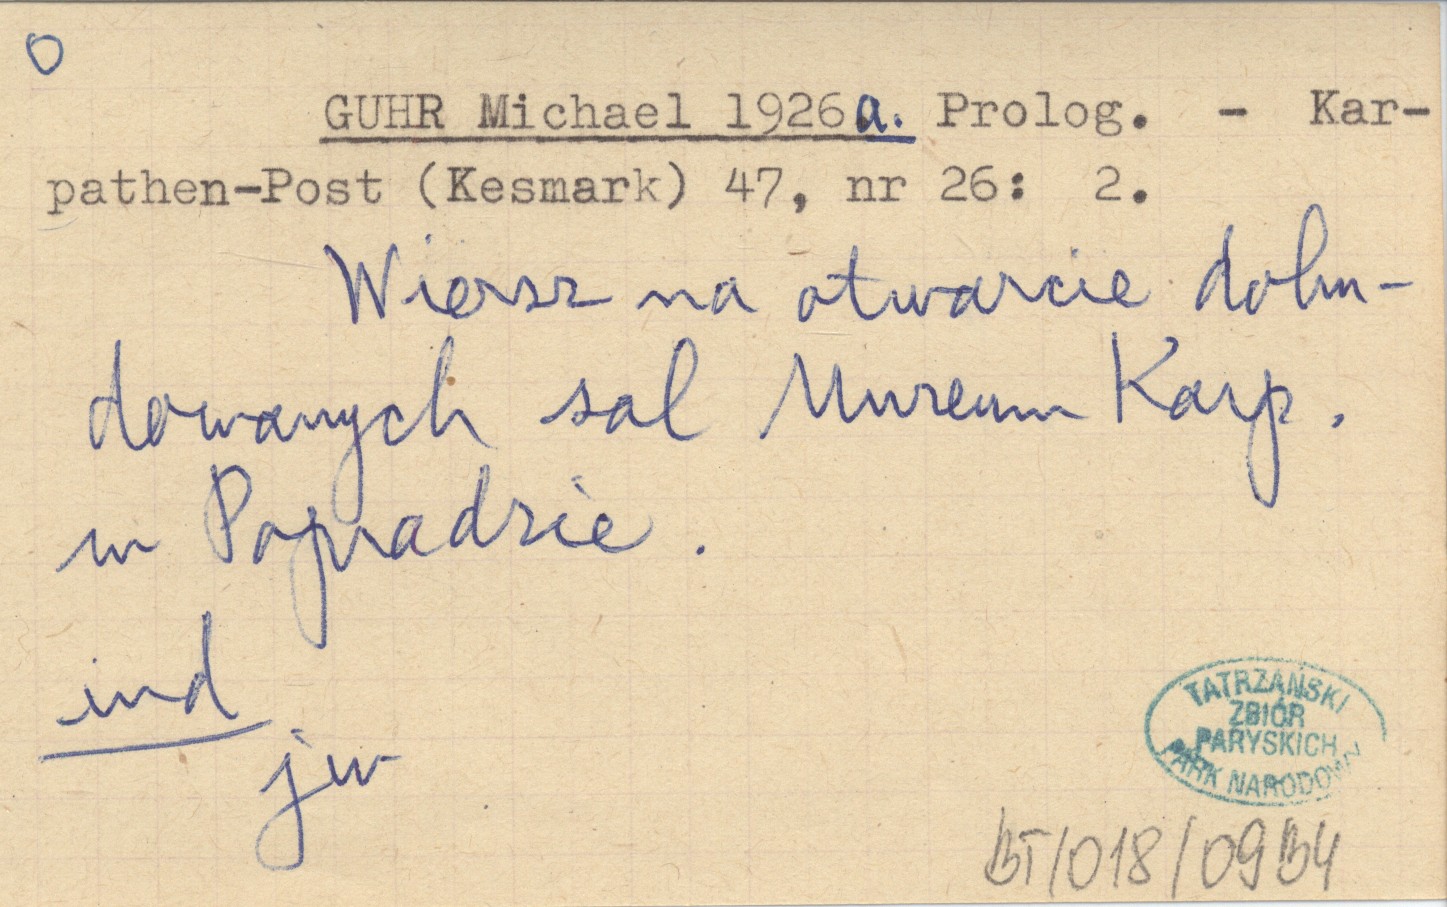 O
GUHR Michael 1926a. Prolog. - Kar-
pathen-Post (Kesmark) 47, nr 26: 2.
Wiersz na otwarcie dobu-
dowanych sal Muzeum Karp.
w Popradzie.
ind
jw
TATRZAŃSKI
ZBIÓR
PARYSKICH
PARK NARODOWY
BT/018/09134